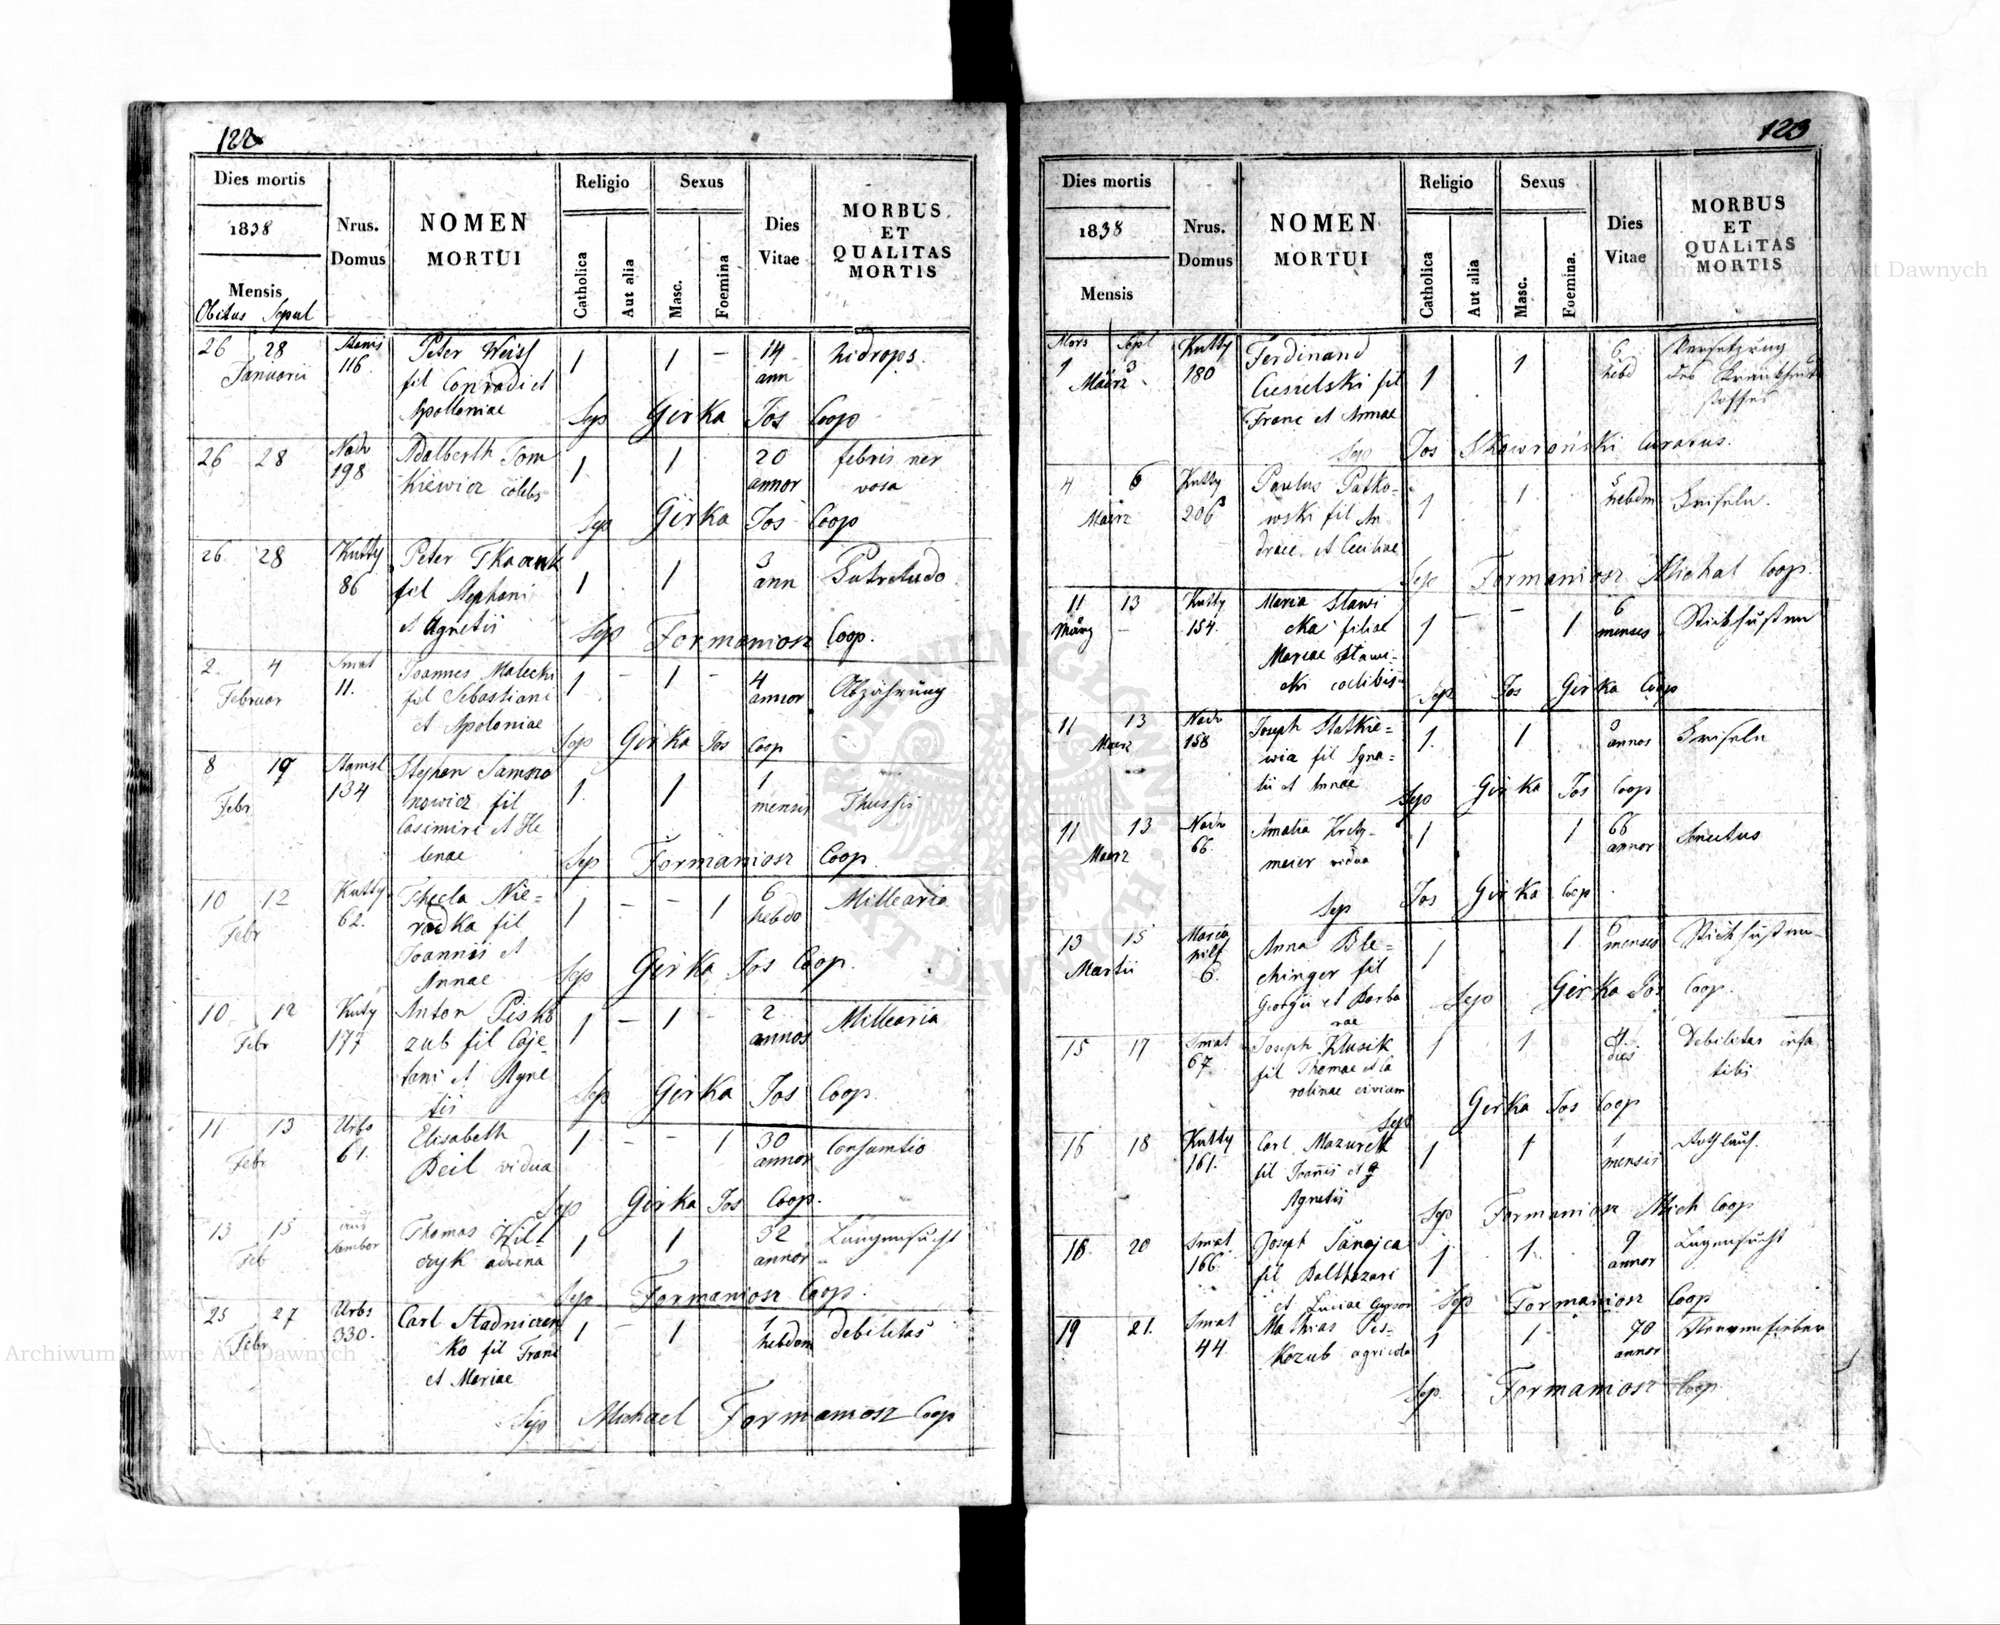 122
Dies mortis
1838
Mensis
Obitus Sepul
Nrus.
Domus
NOMEN
MORTUI
Religio
Catholica
Aut alia
Sexus
Masc.
Foemina
Dies
Vitae
MORBUS
ET
QUALITAS
MORTIS
26 28 116 Peter Weiss 1 1 – 14 hidrops.
Januarii fil Conradi et ann
Apolloniae Sep Girka Jos Coop
26 28 Nado Adalberth Tom 1 1 20 febris ner
198 Kiewicz annor vosa
Sep Girka Jos Coop
26 28 Kutty Peter 3 Putretudo
86 fil Stephani 1 1 ann
et Agnetis Sep Formaniosz Coop.
2 4 Smat Joannes Malecki 1 – 1 – 4 Abzährung
Februar 11. fil Sebastiani annor
et Apoloniae Sep Girka Jos Coop
8 19 Stephan Samso 1 1 1 Thussis
Febr 134 nowicz fil mensis
Casimiri et He
lenae Sep Formaniosz Coop.
10 12 Kutty Thecla Nie= 1 – – 1 6 Millearia
Febr 62. radka fil hebdo
Joannis et
Annae Sep Girka Jos Coop.
10 12 Kuty Anton Pisko 1 – 1 – 2 Millearia
Febr 177 zub fil Caje= annos
tani et Agne
tis Sep Girka Jos Coop.
11 13 Urbs Elisabeth 1 – – 1 30 Consumtio
Febr 61. Beil vidua annor
Sep Girka Jos Coop.
13 15 aus Thomas Wil= 1 1 32 Lungensucht
Feb Sambor czyk advena annor
Sep Formaniosz Coop.
25 27 Urbs Carl Stadniczen 1 – 1 1 debilitas
Febr 330. ko fil Franc hebdom
et Mariae
Sep Michael Formaniosz Coop
123
Dies mortis
1838
Mensis
Nrus.
Domus
NOMEN
MORTUI
Religio
Catholica
Aut alia
Sexus
Masc.
Foemina.
Dies
Vitae
MORBUS
ET
QUALITAS
MORTIS
Mors Sepl
1 3 Kutty Ferdinand 1 1 6 Versetzung
März 180 fil hebd des Krankheits
Franc et Annae stoffes
Sep Jos Skowroński Curatus.
4 6 Kutty Paulus Patko= 1 1 5
Maerz 206 wski fil An hebdm
dreie et Ceciliae
Sep Formaniosz Michal Coop.
11 13 Kutty Maria Slawi 1 – – 1 6 Stickhusten
März – 154. cka filiae menses
Mariae Slawi=
cki coelibis
Sep Jos Girka Coop
11 13 Nado Joseph Statkie= 1. 1
Maerz 158 wicz fil Igna= annos
tii et Annae
Sep Girka Jos Coop
11 13 Nado Amalia 1 1 66 Senectus
Maerz 66. meier vidua annor
Sep Jos Girka Coop
13 15 Maria Anna Ble= 1 1 6 Stickhusten
Martii hilf chinger fil menses
6. Georgii et Barba
rae Sep Girka Jos Coop.
15 17 Smat Joseph Klusik 1 1 4. Debilitas infa
67 fil Thomae et Ca dies tilis
rolinae civium
Sep Girka Jos Coop
16 18 Kutty Carl Mazurek 1 1 1
161. fil Joannis et mensis
Agnetis
Sep Formaniosz Mich Coop
18 20 Smat Joseph Sanojca 1 1 9 Lugensucht
166. fil Balthazari annor
et Luciae
Sep Formaniosz Coop
19 21. Smat Mathias Pis= 1 1 70 Nervenfieber
44 Kozub agricola annor
Sep Formaniosz Coop
Archiwum Główne Akt Dawnych
Archiwum Główne Akt Dawnych
ARCHIWUM GŁÓWNE AKT DAWNYCH